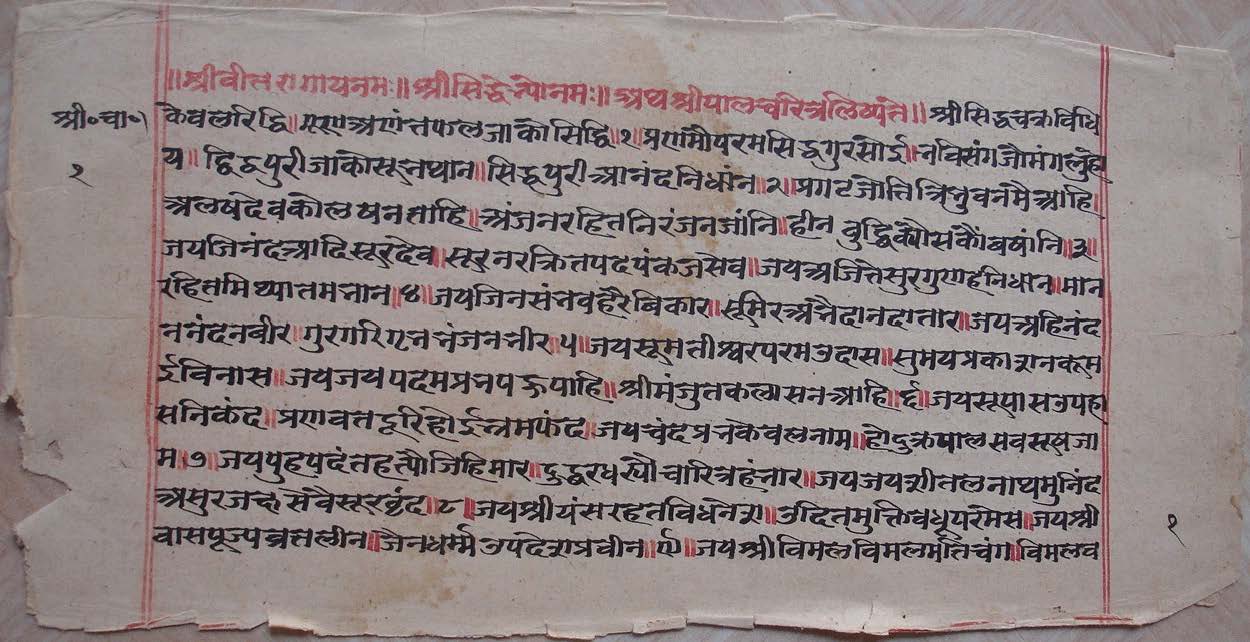 ॥श्रीवीतरागायनमः॥श्रीसिद्धेभ्योनमः॥अथश्रीपालचरित्रलिष्यंते॥श्रीसिद्धचक्रविधि
श्री०चा०१
केवलरिद्धि॥गूरणअणंतफलजाकोसिद्धि॥१॥प्रणमौपरमसिद्धगुरसोई॥नविसंगजौमंगलहो
य॥द्धिद्धपुरीजाकोसूनथान॥सिद्धपुरीआनंदनिधांन॥२॥प्रगटजोतित्रिभुवनंमैआहि॥
२
अलषदेवकोलषनताहि॥अंजनरहितनिरंजनजांनि॥हीनबुद्धिक्यौसकौंबषांनि॥३॥
जयजिनंदआदिसूरदेव॥सूरनरक्रितपदपंकजसेव॥जयअजितेसुरगुणहनिधान॥मान
रहितमिथ्यातमभान॥४॥जयजिनसंभवहरैबिकार॥सूमिरअंभैदानदातार॥जयअहिनंद
ननंदनवीर॥गुरगरिगृनभंजनभीर॥५॥जयसूमतीश्वरपरमउदास॥सुमयप्रकाशनकुम
ईविनास॥जयजयपदमप्रभपऊपाहि॥श्रीमंजुतकलासनआहि॥६॥जयसूपासउपहा
सनिकंद॥प्रणवतदूरिहोईभ्रमफंद॥जयचंदप्रभकेवलनाम॥होदुक्रपालसवसूषजा
म॥७॥जयपुहपदंतहत्यौजिहिमार॥दुद्धरधस्यौचारित्रहंभार॥जयजयशीतलनाथमुनिंद
असुरजक्षसेवैसूरवृंद॥८॥जयश्रीयंसरहतविधनेश॥उदितमुक्तिवधूपरमेस॥जयश्री
वासपूज्यव्रतलीन॥जैनधर्म्मउपदेशप्रवीन॥९॥जयश्रीविमलविमलमतिचंग॥विमलव
१